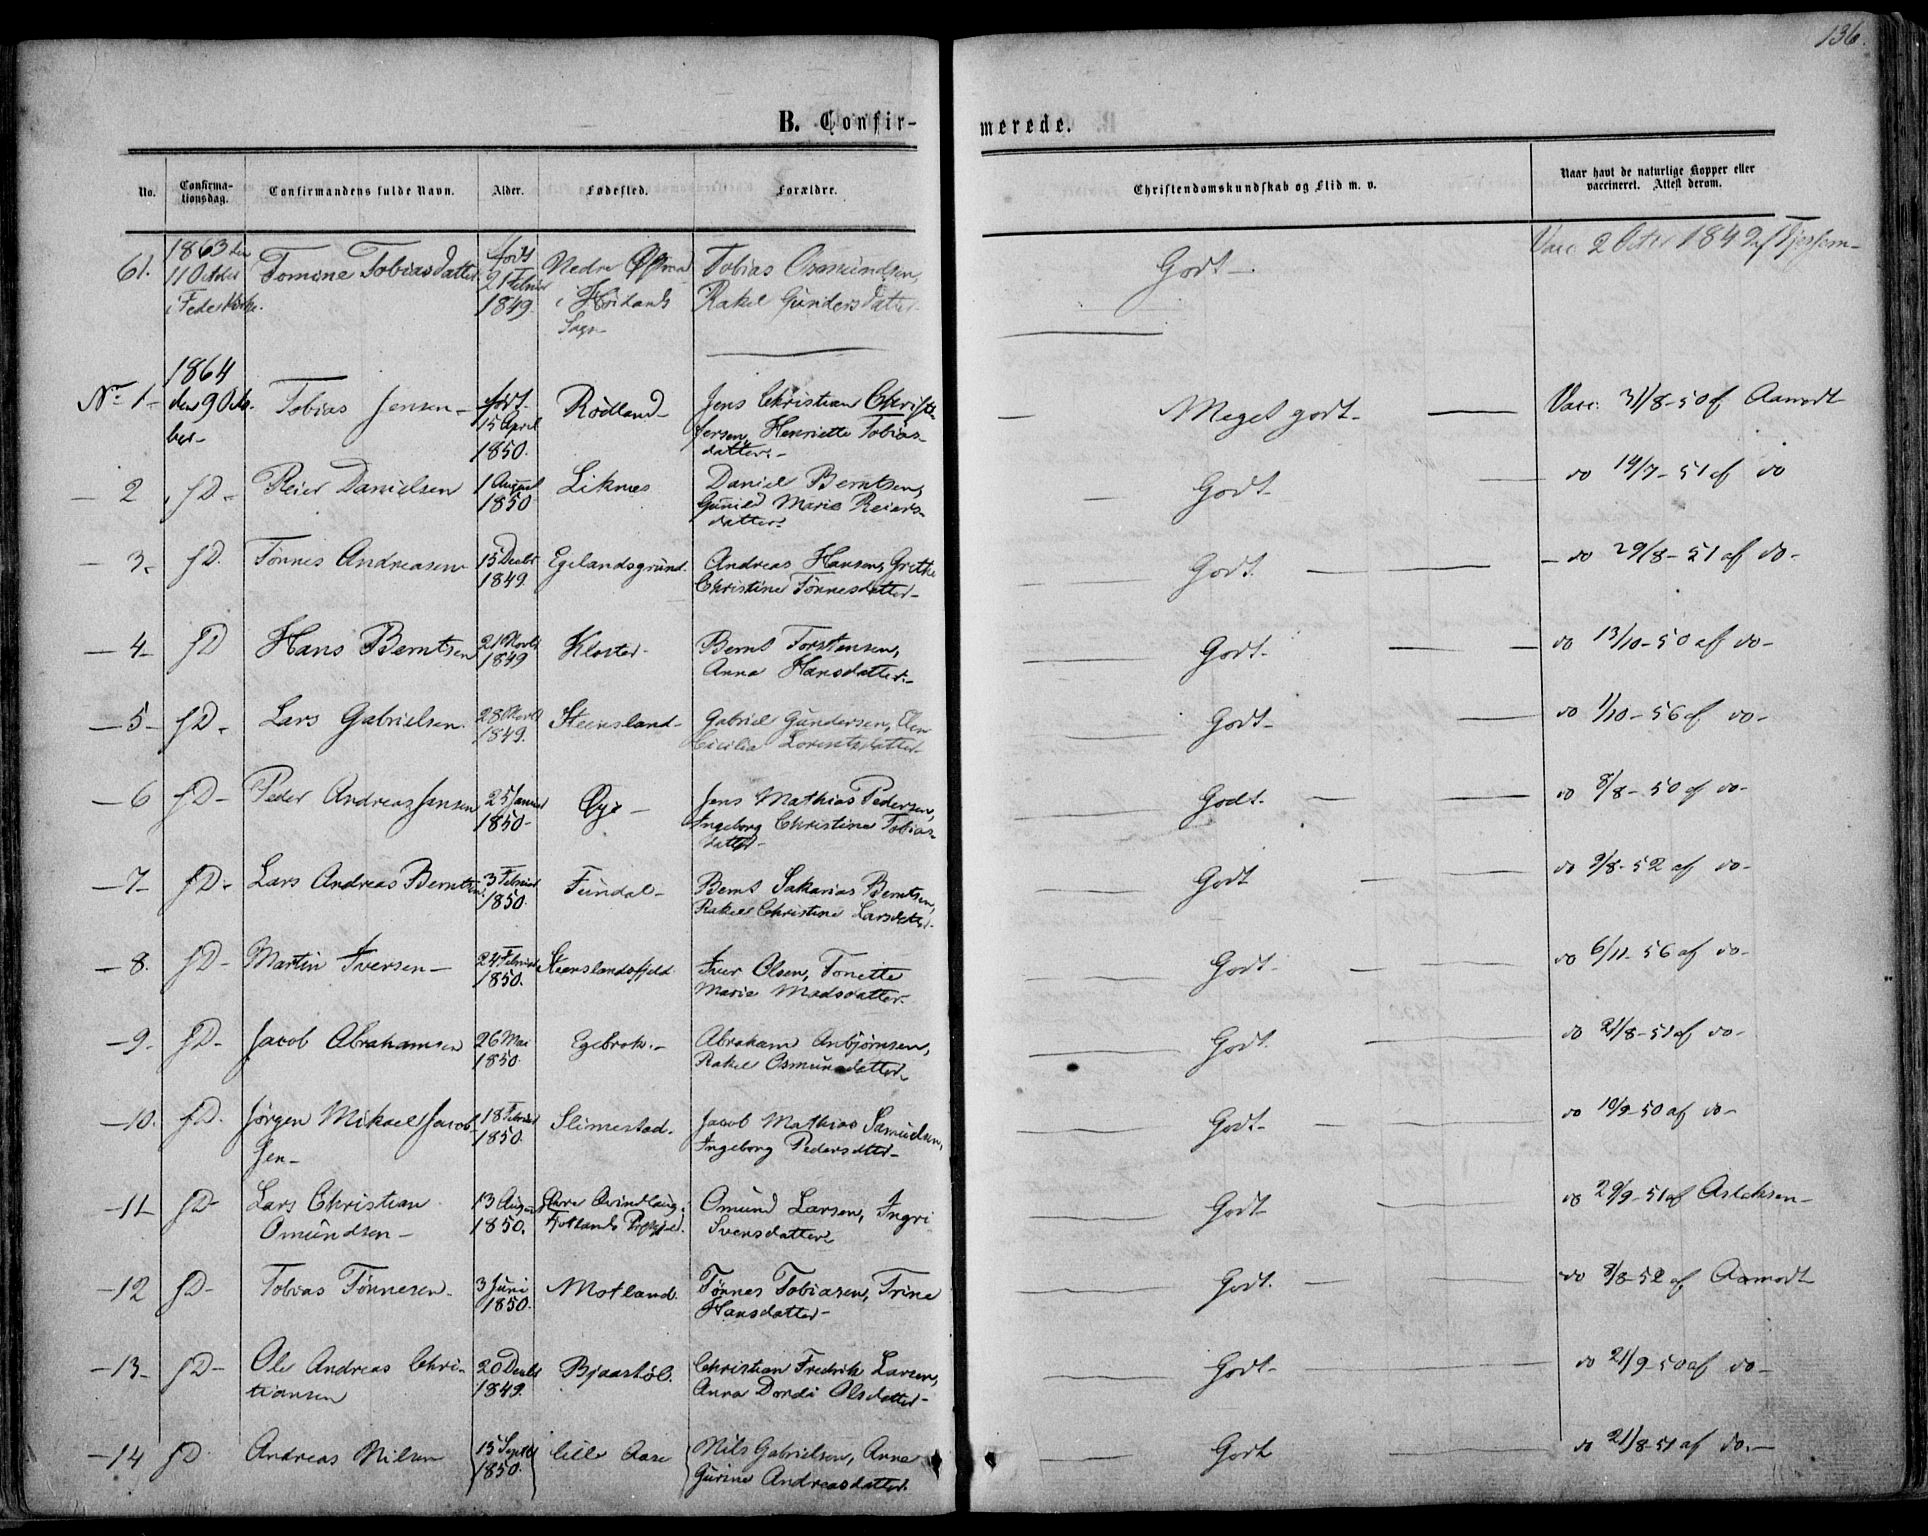 136.
B. Confirmerede.
No. Confirmationsdag. Confirmandens fulde Navn. Alder. Fødested. Forældre. Christendomskundskab og Flid m. v. Naar havt de naturlige Kopper eller vaccineret. Attest derom.
61. 1863 den 11 Octbr i Fede Kirke. Tomine Tobiasdatter født 21 Febrar 1849. Nedre i Sogn Tobias Osmundsen, Rakel Gundersdatter. Godt - Vacc 2 Octbr 1849 af
1864
No 1- den 9 October- Tobias Jensen- født 15 April 1850. Rødland- Jens Christian Christ Jensen, Henriette Tobiasdatter.- Meget godt- Vacc: 31/8-50 af Aamodt
- 2 fD- Reier Danielsen 1 August 1850 Liknes Daniel Berntsen, Gunild Marie Reiersdatter. Godt- do 14/7-51 af do
- 3- fD. Tønnes Andreasen 15 Decbr 1849. Egelandsgrund. Andreas Hansen, Grethe Christine Tønnesdatter- Godt. - do 29/8-51 af do-
- 4- fD Hans Berntsen 21 Novbr 1849 Kloster- Bernt Torstensen, Anna Hansdatter.- Godt- do 13/10-50 af do-
- 5- fD- Lars Gabrielsen. 28 Novbr 1849. Steensland- Gabriel Gundersen, Elen Cicilia Lorentsdatter Godt- do 1/10-56 af do-
- 6 fD- Peder Andreas Jensen 25 Januar 1850- Øye- Jens Mathias Pedersen, Ingeborg Christine Tobiasdatter- Godt. do 8/8-50 af do-
- 7- fD- Lars Andreas Berntsen 3 Februar 1850. Fundal- Bernt Sakarias Berntsen, Rakel Christine Larsdatter. Godt do 9/8-52 af do-
- 8. fD- Martin Iversen- 24 Februar 1850. Steenslandsfjeld. Iver Olsen, Tonette Marie Madsdatter. Godt- do 6/11-56 af do-
- 9- fD- Jacob Abrahamsen 26 Mai 1850. Egebrok.- Abraham Anbjørnsen, Rakel Osmundsdatter. Godt. do 21/8-51 af do-
- 10. fD. Jørgen Mikael Jacobsen- 18 Februar 1850. Slimestad- Jacob Mathias Samuelsen, Ingeborg Pedersdtter- Godt- do 10/9-50 af do-
- 11- fD- Lars Christian Omundsen- 13 August 1850. Omund Larsen, Ingri Svensdatter Godt- do 29/9-51 af Aslaksen-
- 12 fD- Tobias Tønnesen- 3 Juni 1850. Motland. Tønnes Tobiasen, Trine Hansdatter- Godt. do 8/8-52 af Aamodt
- 13- fD- Ole Andreas Christiansen 20 Decbr 1849. Bjaastøl. Christian Fredrik Larsen, Anna Dordi Olsdatter- Godt- do 21/9-50 af do-
- 14 fD Andreas Nilsen 15 Septbr 1850. lille Aase Nils Gabrielsen, Anne Gurine Andreasdatter. Godt do 21/8-51 af do.-